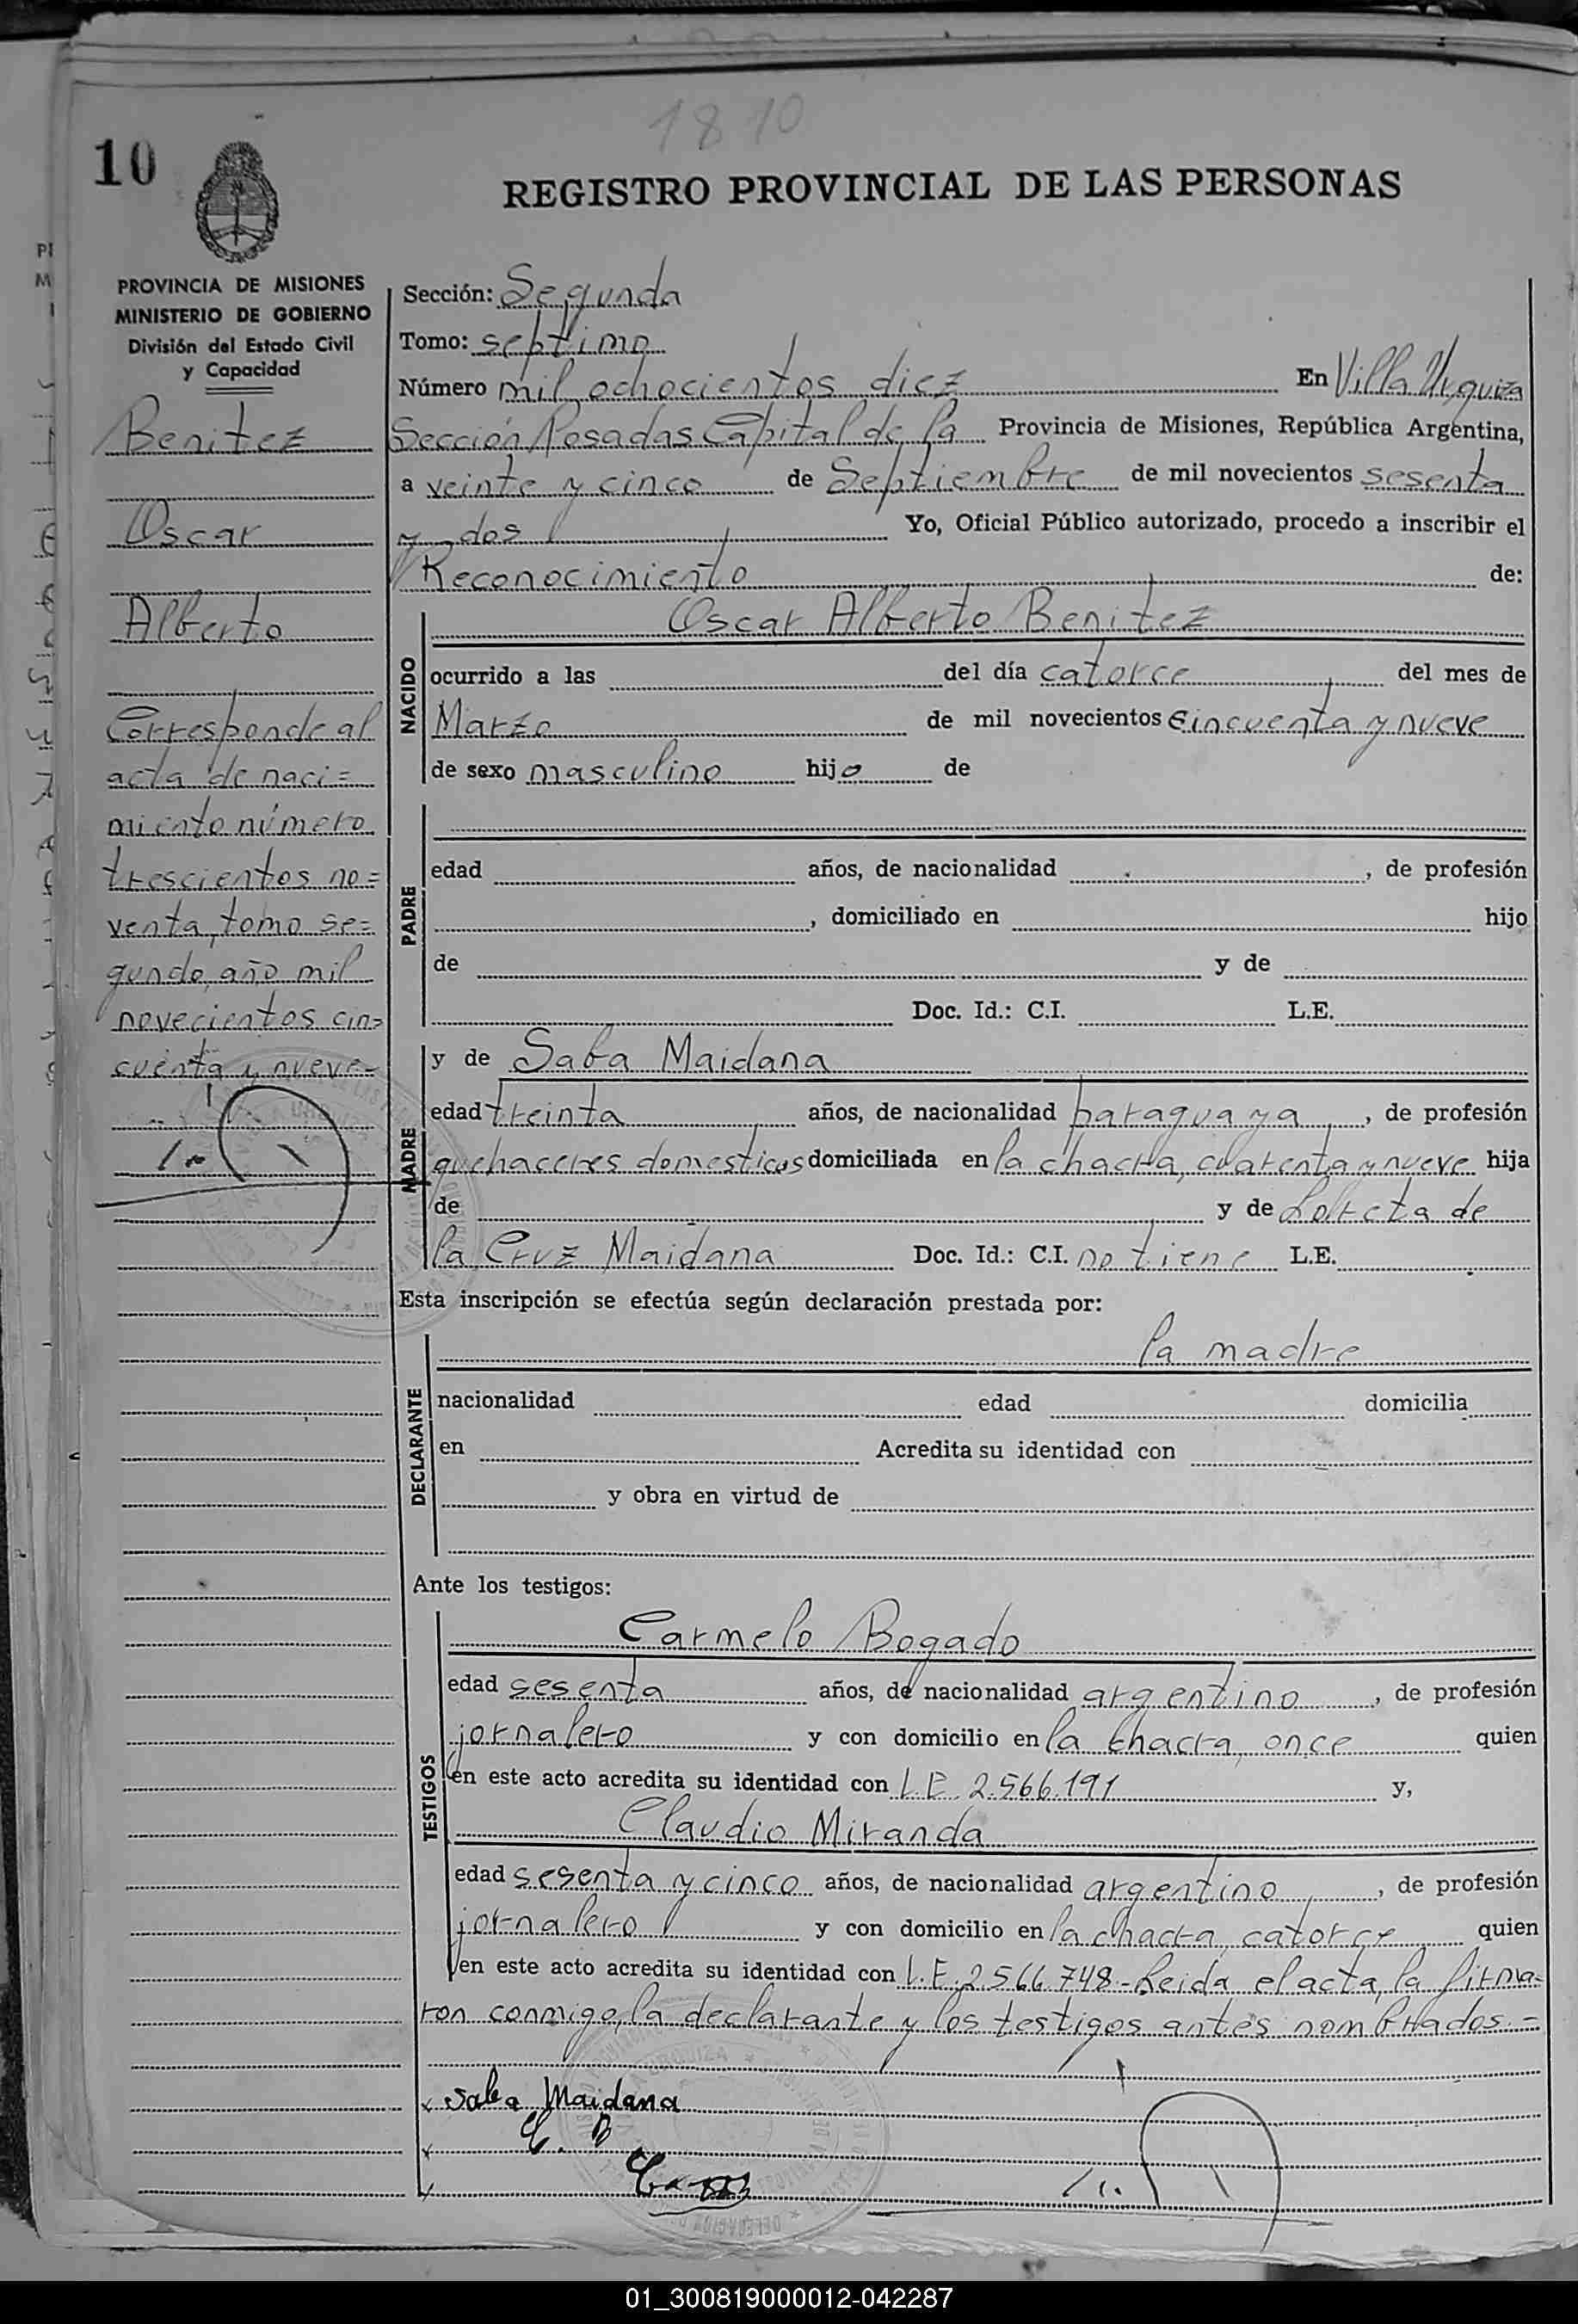 1810
10
REGISTRO PROVINCIAL DE LAS PERSONAS
PROVINCIA DE MISIONES
MINISTERIO DE GOBIERNO
División del Estado Civil
y Capacidad
Benitez
Oscar
Alberto
Corresponde al
acta de naci=
miento número
trescientos no=
venta, tomo se=
gundo, año mil
novecientos cin=
cuenta y nueve.-
Sección: Segunda
Tomo: septimo
Número mil ochocientos diez En Villa Urquiza
Sección Posadas Capital de la Provincia de Misiones, República Argentina,
a veinte y cinco de Septiembre de mil novecientos sesenta
y dos Yo, Oficial Público autorizado, procedo a inscribir el
Reconocimiento de:
NACIDO
Oscar Alberto Benitez
ocurrido a las del día catorce del mes de
Marzo de mil novecientos cincuenta y nueve
de sexo masculino hijo de
PADRE
edad años, de nacionalidad , de profesión
, domiciliado en hijo
de y de
Doc. Id.: C.I. L.E.
MADRE
y de Saba Maidana
edad treinta años, de nacionalidad paraguaya, de profesión
quehaceres domesticos domiciliada en la chacra, cuarenta y nueve hija
de y de Loreta de
la Cruz Maidana Doc. Id.: C.I. no tiene L.E.
Esta inscripción se efectúa según declaración prestada por:
DECLARANTE
la madre
nacionalidad edad domicilia
en Acredita su identidad con
y obra en virtud de
Ante los testigos:
TESTIGOS
Carmelo Bogado
edad sesenta años, de nacionalidad argentino, de profesión
jornalero y con domicilio en la chacra, once quien
en este acto acredita su identidad con L.E. 2.566.191 y,
Claudio Miranda
edad sesenta y cinco años, de nacionalidad argentino, de profesión
jornalero y con domicilio en la chacra, catorce quien
en este acto acredita su identidad con L.E. 2.566.748.- Leida el acta, la firma=
ron conmigo, la declarante y los testigos antes nombrados.=
x Saba Maidana
x C. B
x
01_300819000012-042287